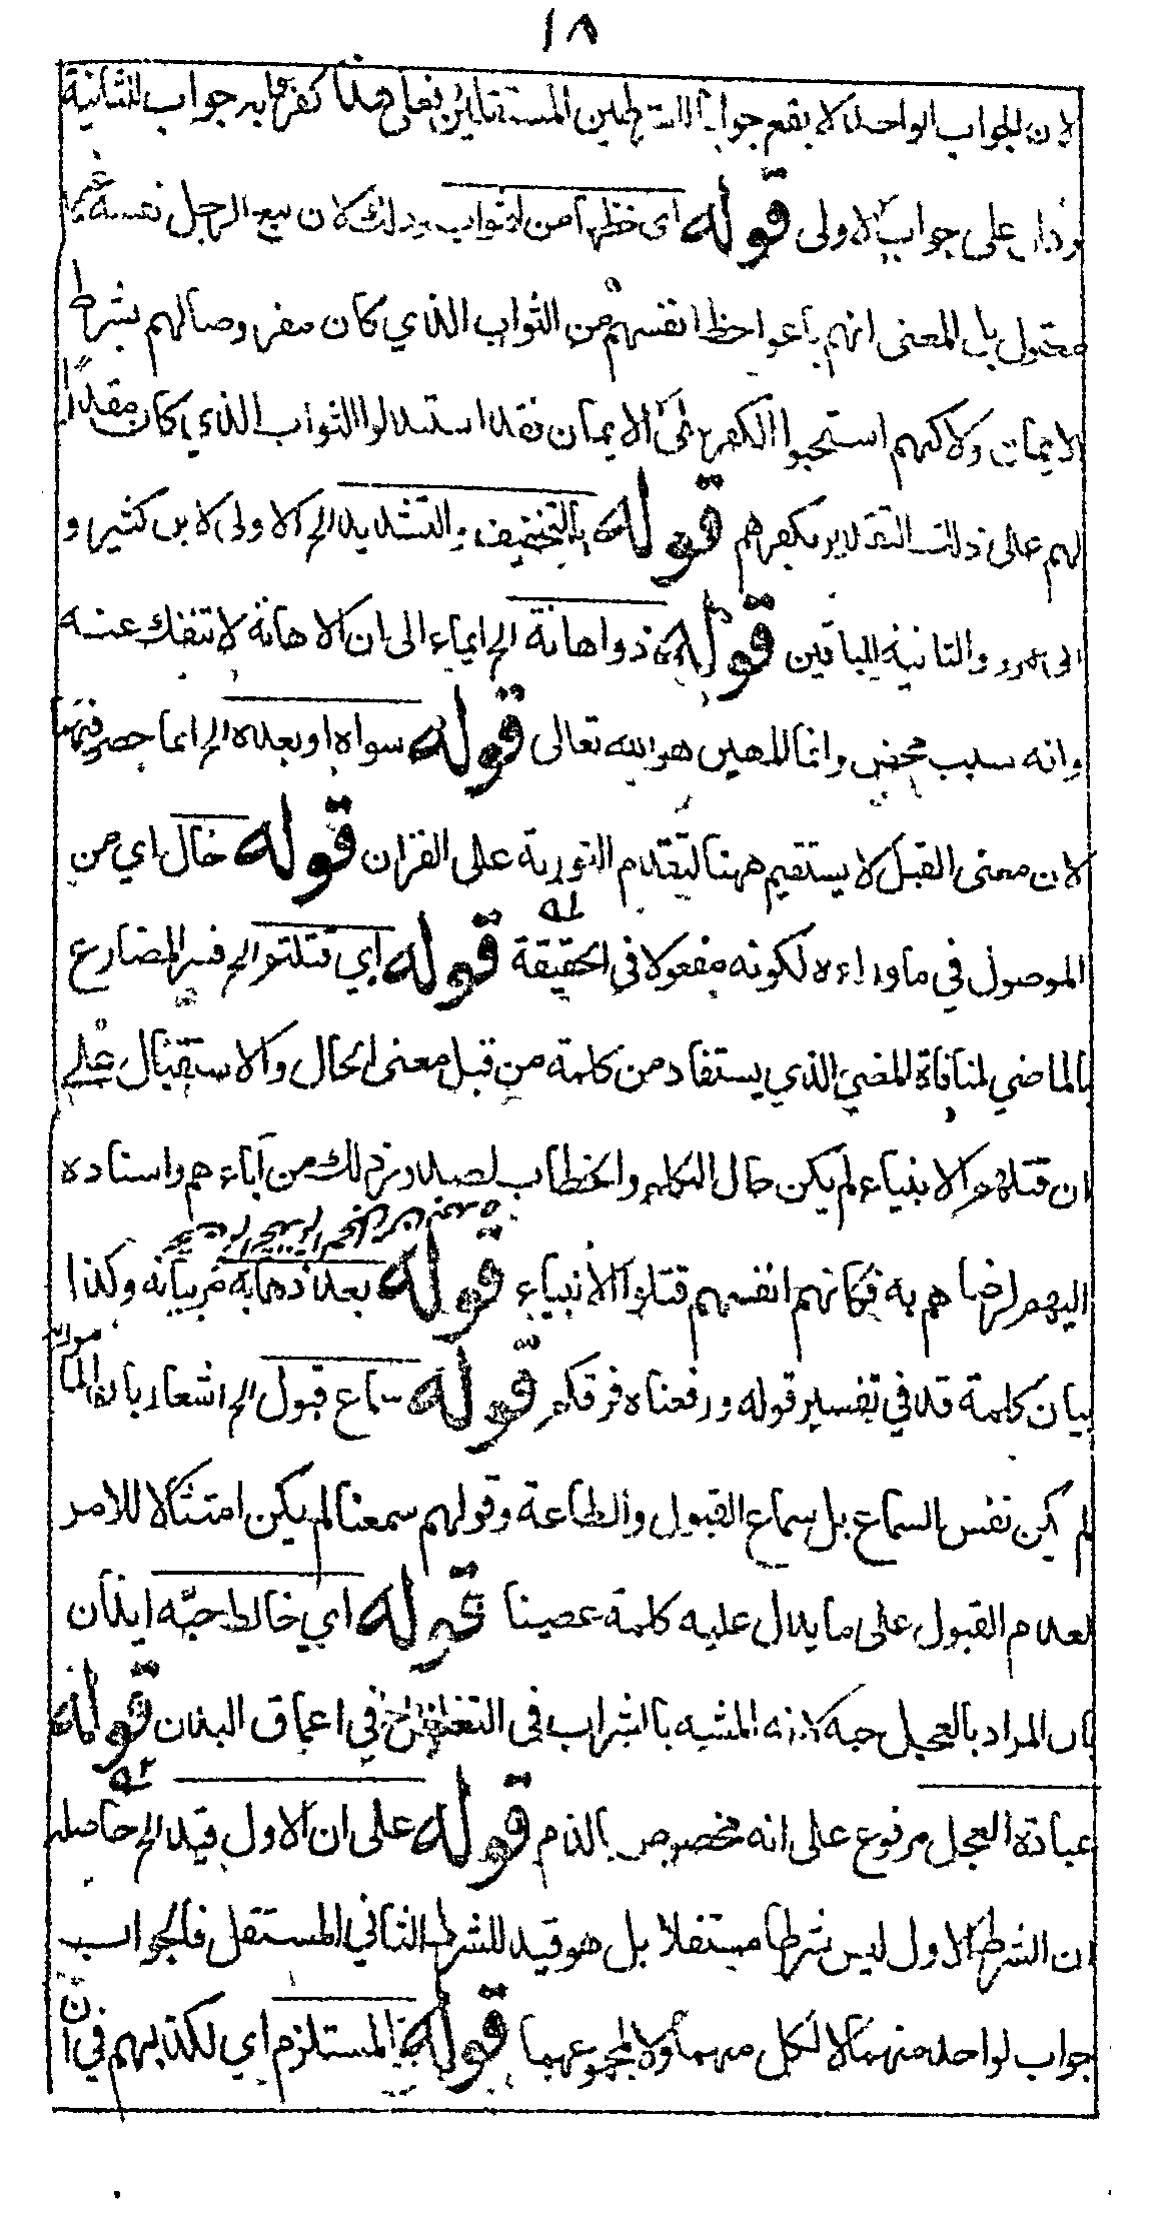 ١٨
لان الجواب الواحد لا يقع جوابا للشرطين المستقلين فعلى هذا كفروا به جواب للثانية
ودال على جواب الاولى قوله اى حظها من الثواب وذلك لان بيع الرجل نفسه غير
معقول بل المعنى انهم باعوا حظ انفسهم من الثواب الذي كان مفروضا لهم بشرط
الايمان ولاكنهم استحبوا الكفر على الايمان فقد استبدلوا الثواب الذي كان مقدرا
لهم على ذلك التقدير بكفرهم قوله بالتخفيف والتشديد الخ الاولى لابن كثير و
ابى عمرو والثانية للباقين قوله ذو اهانة الخ ايماء الى ان الاهانة لا تنفك عنه
وانه سبب محض وانما المهين هو الله تعالى قوله سواه او بعده الخ انما حصر فيهما
لان معنى القبل لا يستقيم ههنا لتقدم التورية على القران قوله حال اي من
الموصول في ما وراءه لكونه مفعولا في الحقيقة قوله اي قتلتم الخ فسر المضارع
بالماضي لمنافاة المضي الذي يستفاد من كلمة من قبل معنى الحال والاستقبال على
ان قتلهم الانبياء لم يكن حال التكلم والخطاب لصدور ذلك من آباءهم واسناده
اليهم لرضاهم به فكانهم انفسهم قتلوا الانبياء قوله بعد ذهابه مر بيانه وكذا
بيان كلمة قد في تفسير قوله ورفعنا فوقكم قوله سماع قبول الخ اشعار بان المامور به
لم يكن نفس السماع بل سماع القبول والطاعة وقولهم سمعنا لم يكن امتثالا للامر
لعدم القبول على ما يدل عليه كلمة عصينا قوله اي خالط حبه ايذان
بان المراد بالعجل حبه لانه المشبه بالشراب في التغلغل في اعماق البدن قوله
عبادة العجل مرفوع على انه مخصوص بالذم قوله على ان الاول قيد الخ حاصله
ان الشرط الاول ليس شرطا مستقلا بل هو قيد للشرط الثاني المستقل فالجواب
جواب لواحد منهما لا لكل منهما ولا لمجموعهما قوله المستلزم اي لكذبهم في ان